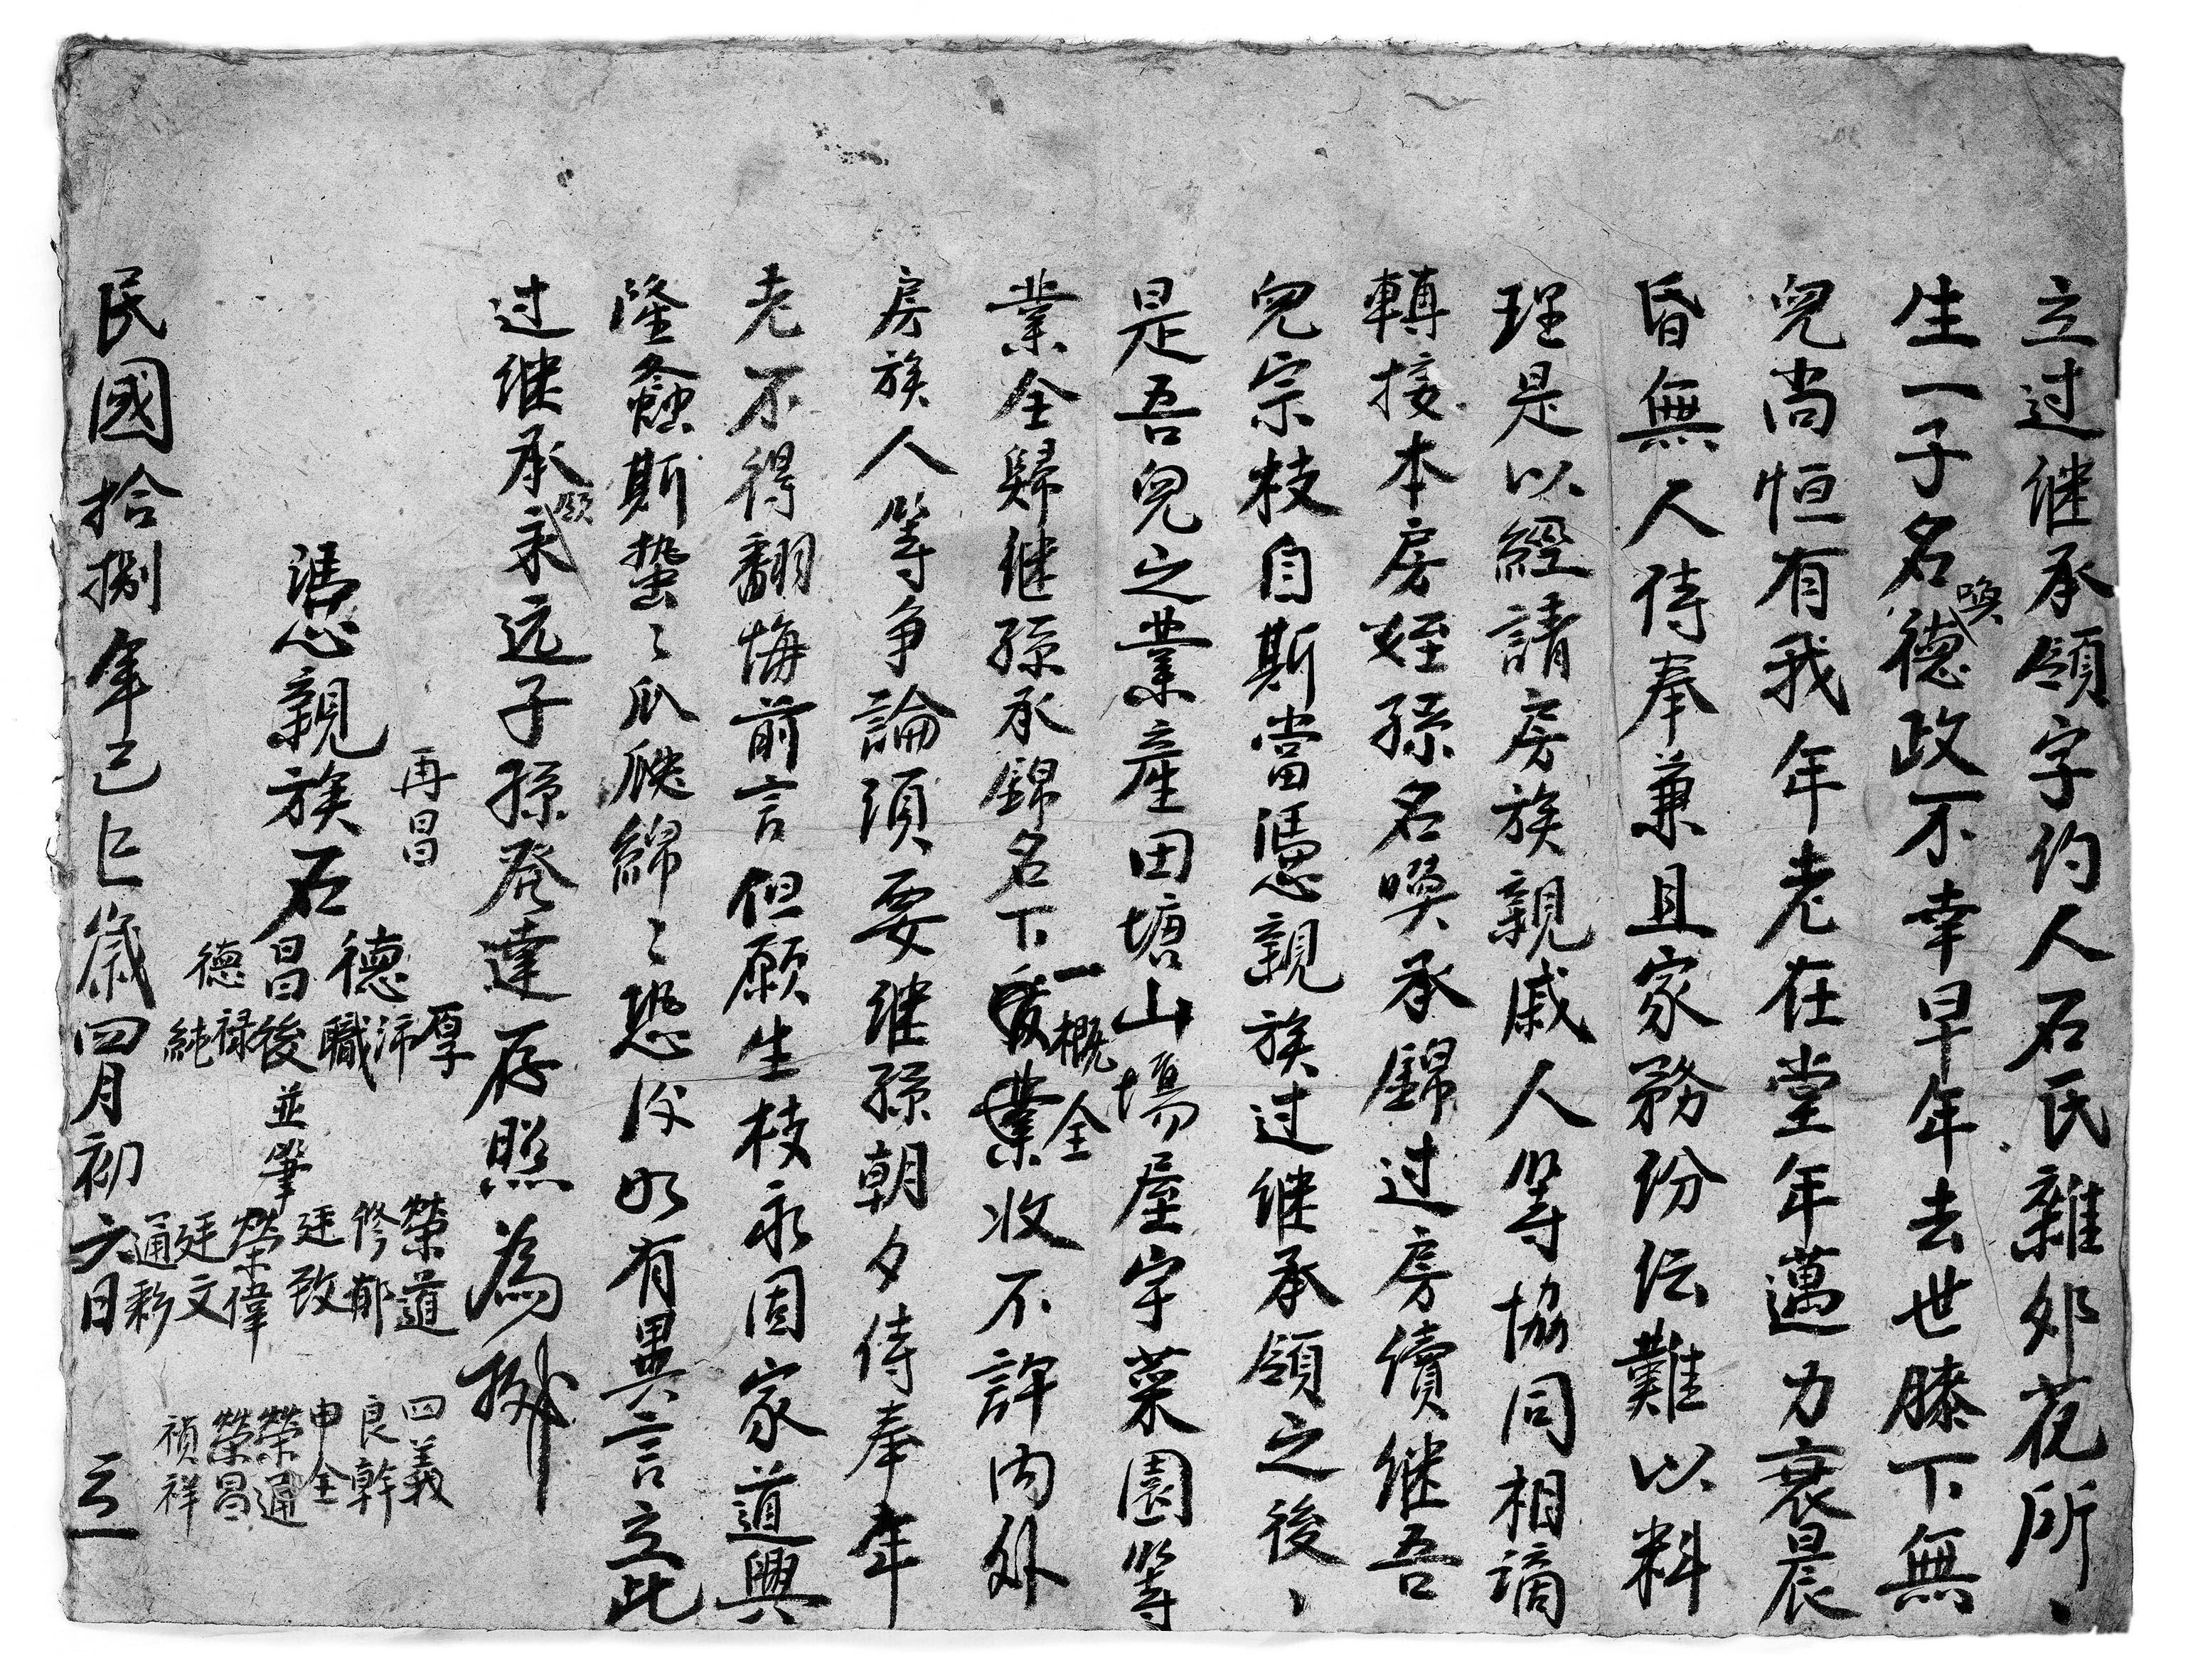 立过继承領字约人石氏雜邜花所、
生一子名喚德政不幸早年去世膝下無
兒尚恒有我年老在堂年邁力衰晨
昏無人侍奉兼且家務份伝難以料
理是以經請房族親戚人等協同相謪
轉接本房姪孫名喚承錦过房續继吾
兒宗枝自斯當憑親族过继承領之後、
是吾兒之業產田塘山塲屋宇菜園等
業全歸继孫承錦名下一概全收不許内外
房族人等争論須要继孫朝夕侍奉年
老不得翻悔前言但願生枝永固家道興
隆螽斯蟄〻瓜瓞綿〻恐后如有異言立此
过继承領永远子孫發達存照為據
憑親族石
再昌
德厚
沛
職
昌後並筆
德禄
純
榮道
修郁
廷致
榮偉
廷文
通彩
四義
良幹
申全
榮通
榮昌
禎祥
民國拾捌年己巳歲四月初六日 立